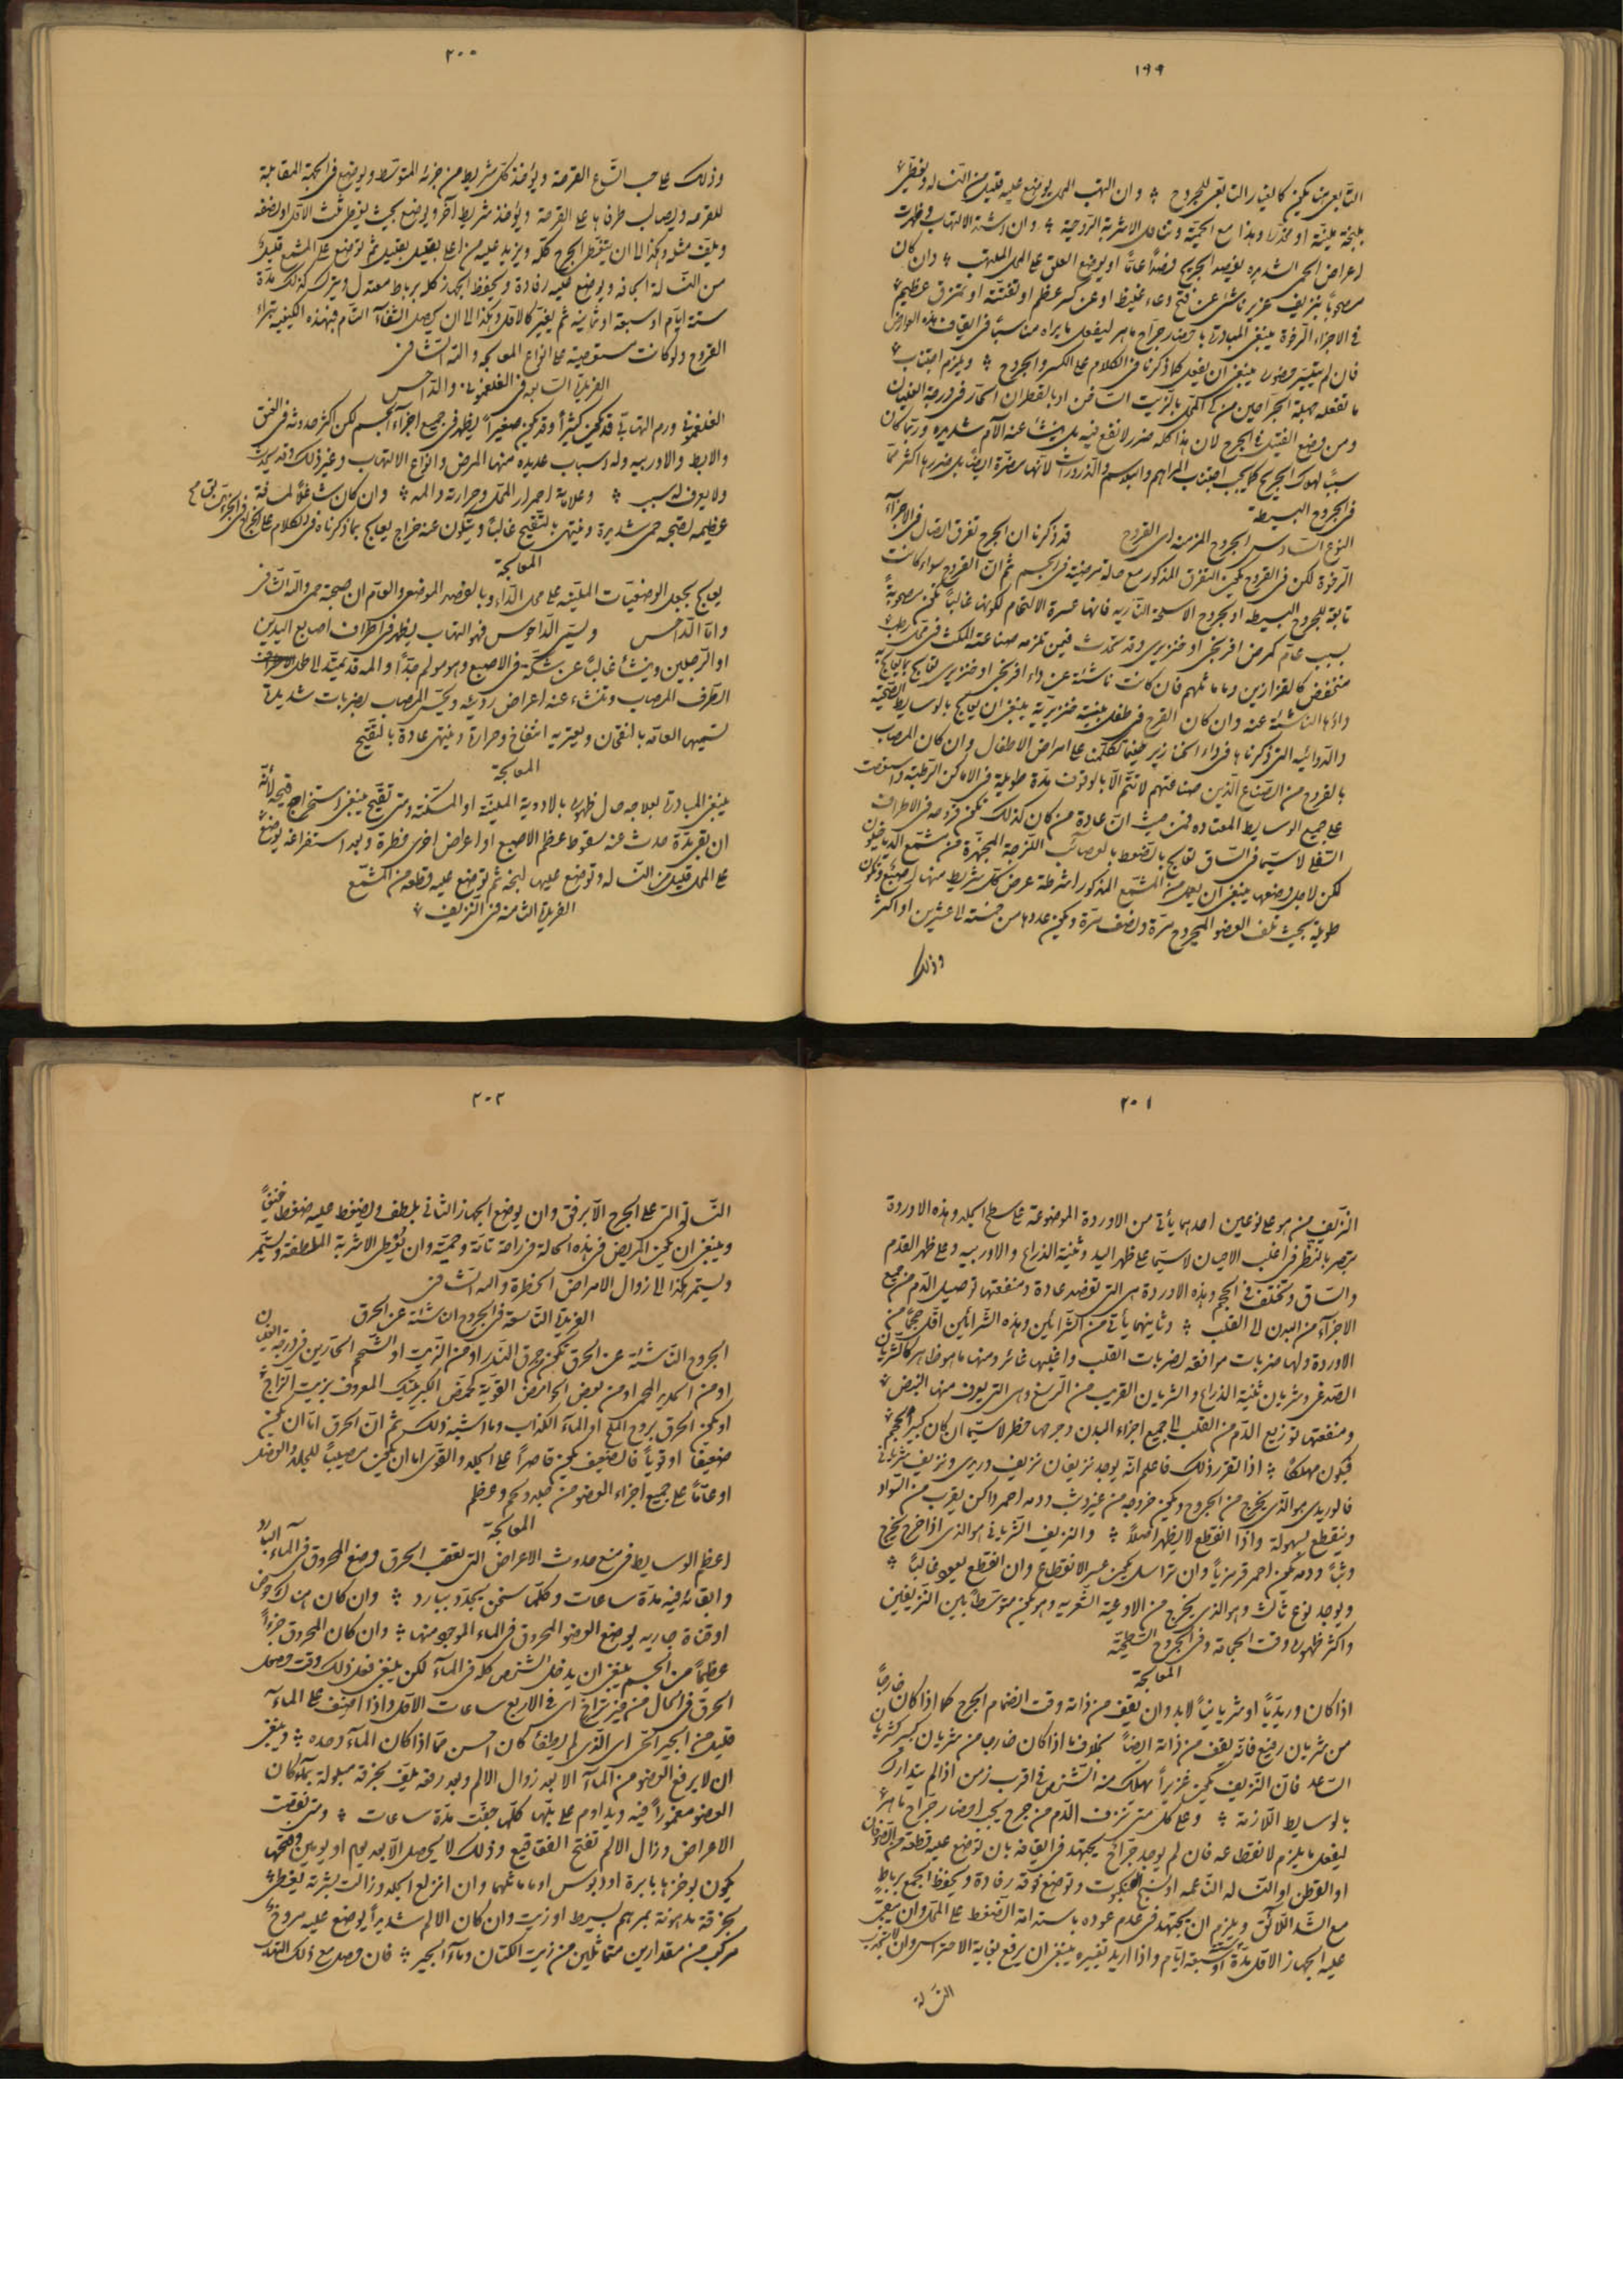 ١٩٩
التابعى هنا يكون كالغيار التابعى للجروح ؞ وان التهب المحل يوضع عليه قليل من النساله ويغطى
بلبخة ملينة او مخدرة وهذا مع الحمية وتناول الاشربة الروحية ؞ وان اشتد الالتهاب وظهرت
اعراض الحمى الشديده يفصد الجريح فصدًا عامًا او يوضع العلق على المحل الملتهب ؞ وان كان
مصحوبًا بنزيف غزير ناشئ عن فتح وعاء غليظ او عن كسر عظم او تفتته او تمزق عظيم
فى الاجزاء الرخوة ينبغى المبادرة باحضار جراح ماهر ليفعل ما يراه مناسبًا فى ايقاف هذه العوارض
فان لم يتيسر حضوره ينبغى ان يفعل كما ذكرنا فى الكلام على الكسر والجروح ؞ ويلزم اجتناب
ما تفعله جهلة الجراحين من كى المحل بالزيت الساخن او بالقطران الحار فى درجة الغليان
ومن وضع الفتيلة فى الجرح لان هذا كله ضرر لا نفع فيه بل ينشأ عنه آلام شديده وربما كان
سببًا لهلاك الجريح كما يجب اجتناب المراهم والبلاسم والذرورات لانها مضرة ايضًا بل ضررها اكثر مما
فى الجروح البسيطة
النوع السادس الجروح المزمنه اى القروح قد ذكرنا ان الجرح تفرق اتصال فى الاجزاء
الرخوة لكن فى القروح يكون التفرق المذكور مع حالة مرضية فى الجسم ثم ان القروح سواء كانت
تابعة للجروح البسيطه او لجروح الاسلحة الناريه فانها عسرة الالتحام لكونها غالبًا تكون مصحوبة
بسبب عام كمرض افرنجى او خنزيرى وقد تحدث فيمن تلزمه صناعته المكث فى محل رطب
منخفض كالقزازين وما ماثلهم فان كانت ناشئة عن داء افرنجى او خنزيرى تعالج بما يعالج به
داؤها الناشئة عنه وان كان القرح فى طفل بنيته خنزيرية ينبغى ان يعالج بالوسايط الصحية
والدوائيه التى ذكرناها فى داء الخنازير حينما تكلمنا على امراض الاطفال وان كان المصاب
بالقروح من الصناع الذين صناعتهم لا تتم الا بالوقوف مدة طويلة فى الاماكن الرطبة واستوفت
على جميع الوسايط المعتاده فمن حيث ان عادة من كان كذلك تكون قروحه فى الاطراف
السفلى لاسيما فى الساق تعالج بالضغط بالعصائب اللزجة المجهزة من مشمع الدياخيلون
لكن لاجل وضعها ينبغى ان يعمل من المشمع المذكور اشرطة عرض كل شريط منها اصبع وتكون
طويلة بحيث تلف العضو المجروح مرة ونصف مرة ويكون عددها من خمسة الى عشرين او اكثر
وذلك
٢٠٠
وذلك على حسب اتساع القرحة ويؤخذ كل شريط من جزئه المتوسط ويوضع فى الجهة المقابلة
للقرحه ويصالب طرفاها على القرحة ويؤخذ شريط آخر ويوضع بحيث يغطى ثلث الاول او نصفه
ويلف مثله وهكذا الى ان يتغطى الجرح كله ويزيد عليه من اعلى بقليل ثم توضع على المشمع قليلة
من النسالة الجافه ويوضع عليه رفادة ويحفظ الجهاز كله برباط معتدل ويترك كذلك مدة
ستة ايام او سبعة او ثمانيه ثم يغير كالاول وهكذا الى ان يحصل الشفاء التام فبهذه الكيفيه تبراء
القروح ولو كانت مستعصية على انواع المعالجه والله الشافى
الفريدة السابعه فى الفلغمونى والداحس
الفلغمونى ورم التهابى قد يكون كبيرًا وقد يكون صغيرًا يظهر فى جميع اجزاء الجسم لكن اكثر حدوثه فى العنق
والابط والاوربيه وله اسباب عديده منها المرض وانواع الالتهاب وغير ذلك وقد يحدث
ولا يعرف له سبب ؞ وعلامته احمرار المحل وحرارته والمه ؞ وان كان شاغلًا لمسافة
عظيمه تصحبه حمى شديدة وينتهى بالتقيح غالبًا ويتكون عنه خراج يعالج بما ذكرناه فى الكلام على الخراج
المعالجة
يعالج بجعل الوضعيات الملينه على محل الداء وبالفصد الموضعى والعام ان صحبته حمى والله الشافى
واما الداحس ويسمى الداحوس فهو التهاب يظهر فى اطراف اصابع اليدين
او الرجلين وينشأ غالبًا عن شكة فى الاصبع وهو مولم جدًا والمه قد يمتد الى
الطرف المصاب وتنشأ عنه اعراض رديئه ويحس المصاب بضربات شديدة
تسميها العامه بالنقحان ويعتريه انتفاخ وحرارة وينتهى عادة بالتقيح
المعالجة
ينبغى المبادرة بعلاجه حال ظهوره بالادوية الملينة او المسكنه ومتى تقيح ينبغى استخراج قيحه لأنه
ان بقى مدة حدث عنه سقوط عظم الاصبع او اعراض اخرى خطرة وبعد استفراغه يوضع
على المحل قليل من النساله وتوضع عليها لبخة ثم توضع عليه قطعه من المشمع
الفريدة الثامنه فى النزيف
٢٠١
النزيف من هو على نوعين احدهما يأتى من الاوردة الموضوعة على سطح الجلد وهذه الاوردة
تبصر بالنظر فى اغلب الاحيان لاسيما على ظهر اليد وثنية الذراع والاوربيه وعلى ظهر القدم
والساق وتختلف فى الحجم وهذه الاوردة هى التى تفصد عادة ومنفعتها توصيل الدم من جميع
الاجزاء من البدن الى القلب ؞ وثانيهما يأتى من الشرائين وهذه الشرائين اقل حجمًا من
الاوردة ولها ضربات موافقه لضربات القلب واغلبها غائر ومنها ما هو ظاهر كالشريان
الصدغى وشريان ثنية الذراع والشريان القريب من الرسغ وهى التى يعرف منها النبض
ومنفعتها توزيع الدم من القلب الى جميع اجزاء البدن وجرحها خطر لاسيما ان كان كبير الحجم
فيكون مهلكًا ؞ اذا تقرر ذلك فاعلم انه يوجد نزيفان نزيف وريدى ونزيف شريانى
فالوريدى هو الذى يخرج من الجروح ويكون خروجه من غير وثب ودمه احمر داكن يقرب من السواد
وينقطع بسهولة واذا انقطع لا يظهر اصلًا ؞ والنزيف الشريانى هو الذى اذا خرج يخرج
وثبًا ودمه يكون احمر قرمزيًا وان تراسل يكون عسر الانقطاع وان انقطع يعود غالبًا ؞
ويوجد نوع ثالث وهو الذى يخرج من الاوعية الشعريه وهو يكون متوسطًا بين النزيفين
واكثر ظهوره وقت الحجامة وفى الجروح السطحية
المعالجة
اذا كان وريديًا او شريانيًا لابد وان يقف من ذاته وقت انضمام الجرح كما اذا كان خارجًا
من شريان رفيع فانه يقف من ذاته ايضًا بخلاف ما اذا كان خارجا من شريان كبير كشريان
الساعد فان النزيف يكون غزيرًا يهلك منه الشخص فى اقرب زمن اذا لم يتدارك
بالوسايط اللازمة ؞ وعلى كل متى نزف الدم من جرح يجب احضار جراح ماهر
ليفعل ما يلزم لانقطاعه فان لم يوجد جراح يجتهد فى ايقافه بان توضع عليه قطعة من الصوفان
او القطن او النساله الناعمه او نسج العنكبوت وتوضع فوقه رفادة ويحفظ الجميع برباط
مع الشد اللائق ويلزم ان يجتهد فى عدم عوده باستدامة الضغط على المحل وان يبقى
عليه الجهاز الاول مدة ستة او سبعة ايام واذا اريد تغييره ينبغى ان يرفع بغاية الاحتراس وان لا تجذب
النسالة
٢٠٢
النسالة التى على الجرح الا برفق وان يوضع الجهاز الثانى بلطف ويضغط عليه ضغط خفيفًا
وينبغى ان يكون المريض فى هذه الحالة فى راحة تامة وحمية وان يعطى الاشربة الملطفة ويستمر
ويستمر هكذا الى زوال الامراض الخطرة والله الشافى
الفريدة التاسعة فى الجروح الناشئة عن الحرق
الجروح الناشئة عن الحرق تكون من حرق النار او من الزيت او الشحم الحارين فى درجة الغليان
او من الحديد المحمى او من بعض الحوامض القوية كحمض الكبريتيك المعروف بزيت الزاج
او يكون الحرق بروح الملح او الماء الكذاب وما اشبه ذلك ثم ان الحرق اما ان يكون
ضعيفًا او قويًا فالضعيف يكون قاصرًا على الجلد والقوى اما ان يكون مصيبًا للجلد والعضل
او عامًا على جميع اجزاء العضو من جلد ولحم وعظم
المعالجة
اعظم الوسايط فى منع حدوث الاعراض التى تعقب الحرق وضع المحروق فى الماء البارد
وابقائه فيه مدة ساعات وكلما سخن يجدد ببارد ؞ وان كان هناك حوض
او قناة جاريه يوضع العضو المحروق فى الماء الموجود منها ؞ وان كان المحروق جزءًا
عظيمًا من الجسم ينبغى ان يدخل الشخص كله فى الماء لكن ينبغى فعل ذلك وقت حصول
الحرق فى الحال من غير تراخ اى فى الاربع ساعات الاول واذا اضيف على الماء
قليل من الجير الحى اى الذى لم يطفأ كان احسن مما اذا كان الماء وحده ؞ وينبغى
ان لا يرفع العضو من الماء الا بعد زوال الالم وبعد رفعه يلف بخرقة مبلولة بماء كان
العضو مغمورًا فيه ويداوم على بلها كلما جفت مدة ساعات ؞ ومتى نقصت
الاعراض وزال الالم تفتح الفقاقيع وذلك لا يحصل الا بعد يوم او يومين وفتحها
يكون بوخزها بابرة او دبوس او ما ماثلهما وان انزلع الجلد وزالت بشرته يغطى
بخرقة مدهونة بمرهم بسيط او زيت وان كان الالم شديدًا يوضع عليه مروخ
مركب من مقدارين متماثلين من زيت الكتان وماء الجير ؞ فان حصل مع ذلك التهاب